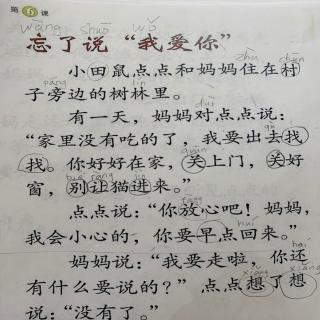 第6课
wàng shuō wǒ
忘了说“我爱你”
zhù cūn
小田鼠点点和妈妈住在村
páng
子旁边的树林里。
duì
有一天，妈妈对点点说：
“家里没有吃的了，我要出去找
找。你好好在家，关上门，关好
bié ràng jìn
窗，别让猫进来。”
fàng
点点说：“你放心吧！妈妈，
huí
我会小心的，你要早点回来。”
hái
妈妈说：“我要走啦，你还
xiǎng xiǎng
有什么要说的？”点点想了想
说：“没有了。”